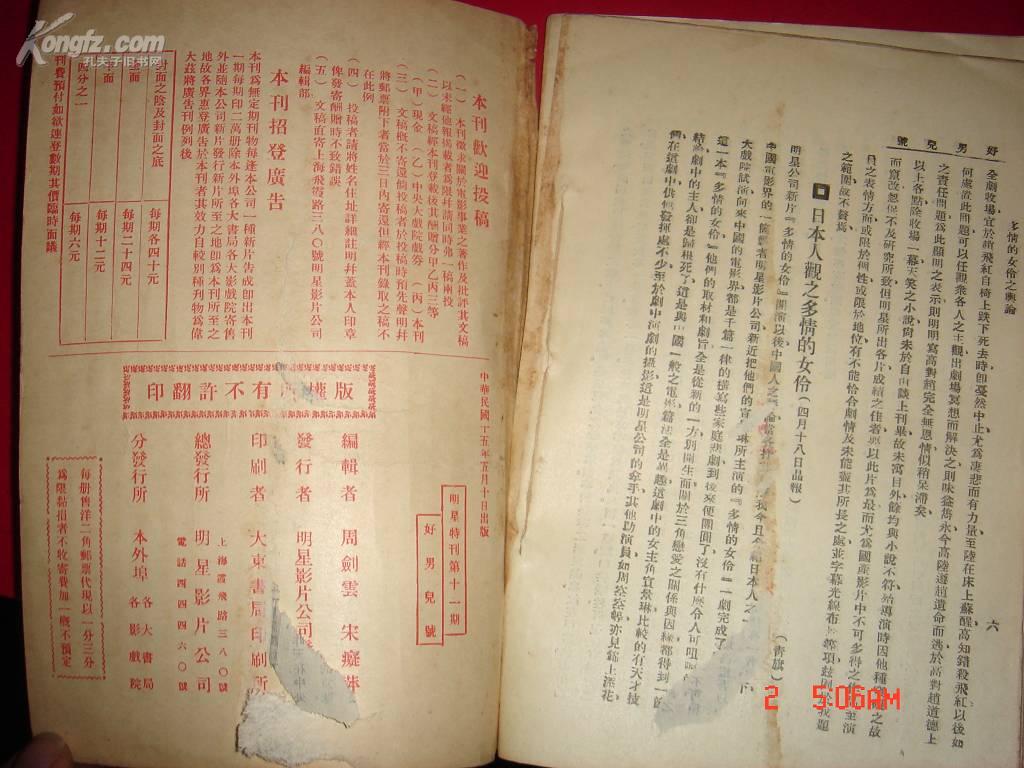 Kongfz.com
孔夫子旧书网
好男兒號
多情的女伶之輿論
六
全劇收場宜於
飛紅自椅上跌下死去時卽戛然中止尤爲凄悲而有力量至陸在床上蘇醒高知錯殺飛紅以後如
何處置此問題可以任觀衆各人之主觀出劇場冥想而解決之則味益雋永今高陸遵趙遺命而逃於高對趙道德上
之責任問題爲此顯明之表示則明明寫高對趙完全無恩情似稍呆滯矣
以上各點
收場一幕天笑之小說尙未於自由談上刊畢故未寓目外餘均與小說不符
導演時因他種
之故
而竄改
不及研究所致但明星所出各片成績之佳者
以此片爲最而尤爲國產影片中不可多得之佳
至演
員之表情方面或限於個性或限於地位有不能恰合劇情及未能盡其所長之處並字幕光線布
等項
之範圍故不贅焉
(青旗)
日本人觀之多情的女伶(四月十八日晶報)
明星公司新片『多情的女伶』開演以後中國人之
我今且介紹日本人之
中國電影界的一
者明星影片公司新近把他們的宣
琳所主演的『多情的女伶』一劇完成了
大戲院試演向來中國的電影界都是千篇一律的描寫些家庭悲劇到後來便團圓了沒有什麼令人可
這一本『多情的女伶』他們的取材和劇旨全是從新的一方別開生面關於三角戀愛之關係與因緣都得到一
結
劇中的主人卻是歸根死了這是與中國一般之電
全是異趣這劇中的女主角宣景琳比較的有天才技
在這劇中供他發揮處不少至於劇中演劇的攝影這是明星公司的拿手其他助演員如周
等亦見錦上添花
本刊歡迎投稿
(一)本刊徵求關於電影事業之著作及批評其文稿
以未經他報揭載者爲限幷請同時弗一稿兩投
(二)文稿經本刊登載後其酬贈分甲乙丙三等
(甲)現金 (乙)中央大戲院戲券 (丙)本刊
(三)文稿概不寄還倘投稿者於投稿時預先聲明幷
將郵票附下者當於三日內寄還但經本刊錄取之稿不
在此例
(四)投稿者請將姓名住址詳細註明幷蓋本人印章
俾發寄酬贈時不致錯誤
(五)文稿直寄上海
飛路三八〇號明星影片公司
編輯部
本刊招登廣告
本刊爲無定期刊物每逢本公司一種新片告成卽出本刊
一期每期印二萬册除本外埠各大書局各大影戲院寄售
外並隨本公司新片發行新片所之地卽爲本刊所至之
地故各界惠登廣告於本刊者其效力自較別種刊物爲偉
大茲將廣告刊例列後
封面之陰及封面之底
每期各四十元
面
每期二十四元
面
每期十二元
四分之一
每期六元
刊費預付如欲連登數期其價臨時面議
版權所有不許翻印
中華民國十五年五月十日出版
明星特刊第十一期
好男兒號
編輯者 周劍雲 宋癡萍
發行者 明星影片公司
印刷者 大東書局印刷所
上海霞飛路三八〇號
總發行所 明星影片公司
電話四四四六〇號
分發行所 本外埠 各大書局 各影戲院
每册售洋二角郵票代現以一分三分
爲限黏損者不收寄費加一概不預定
2 5:06AM